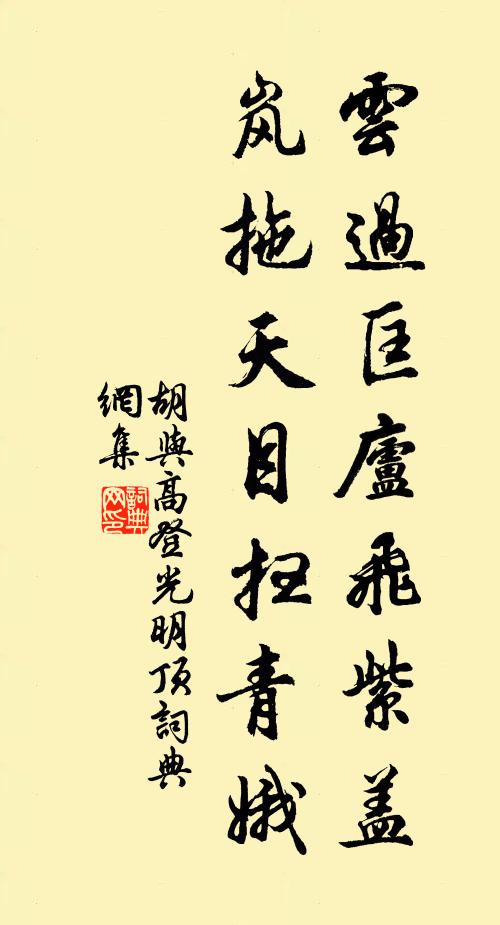 雲過匡廬飛紫盖
岚拖天目扫青娥
胡與高登光明顶詞典
網集
詞典网印